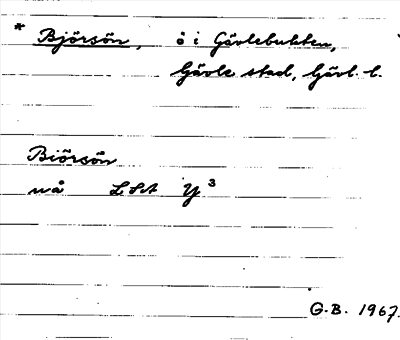 * Björsön, ö i Gävlebukten,
Gävle stad, Gävl. l.
Biörsön
LSA Y³
G.B. 1967.